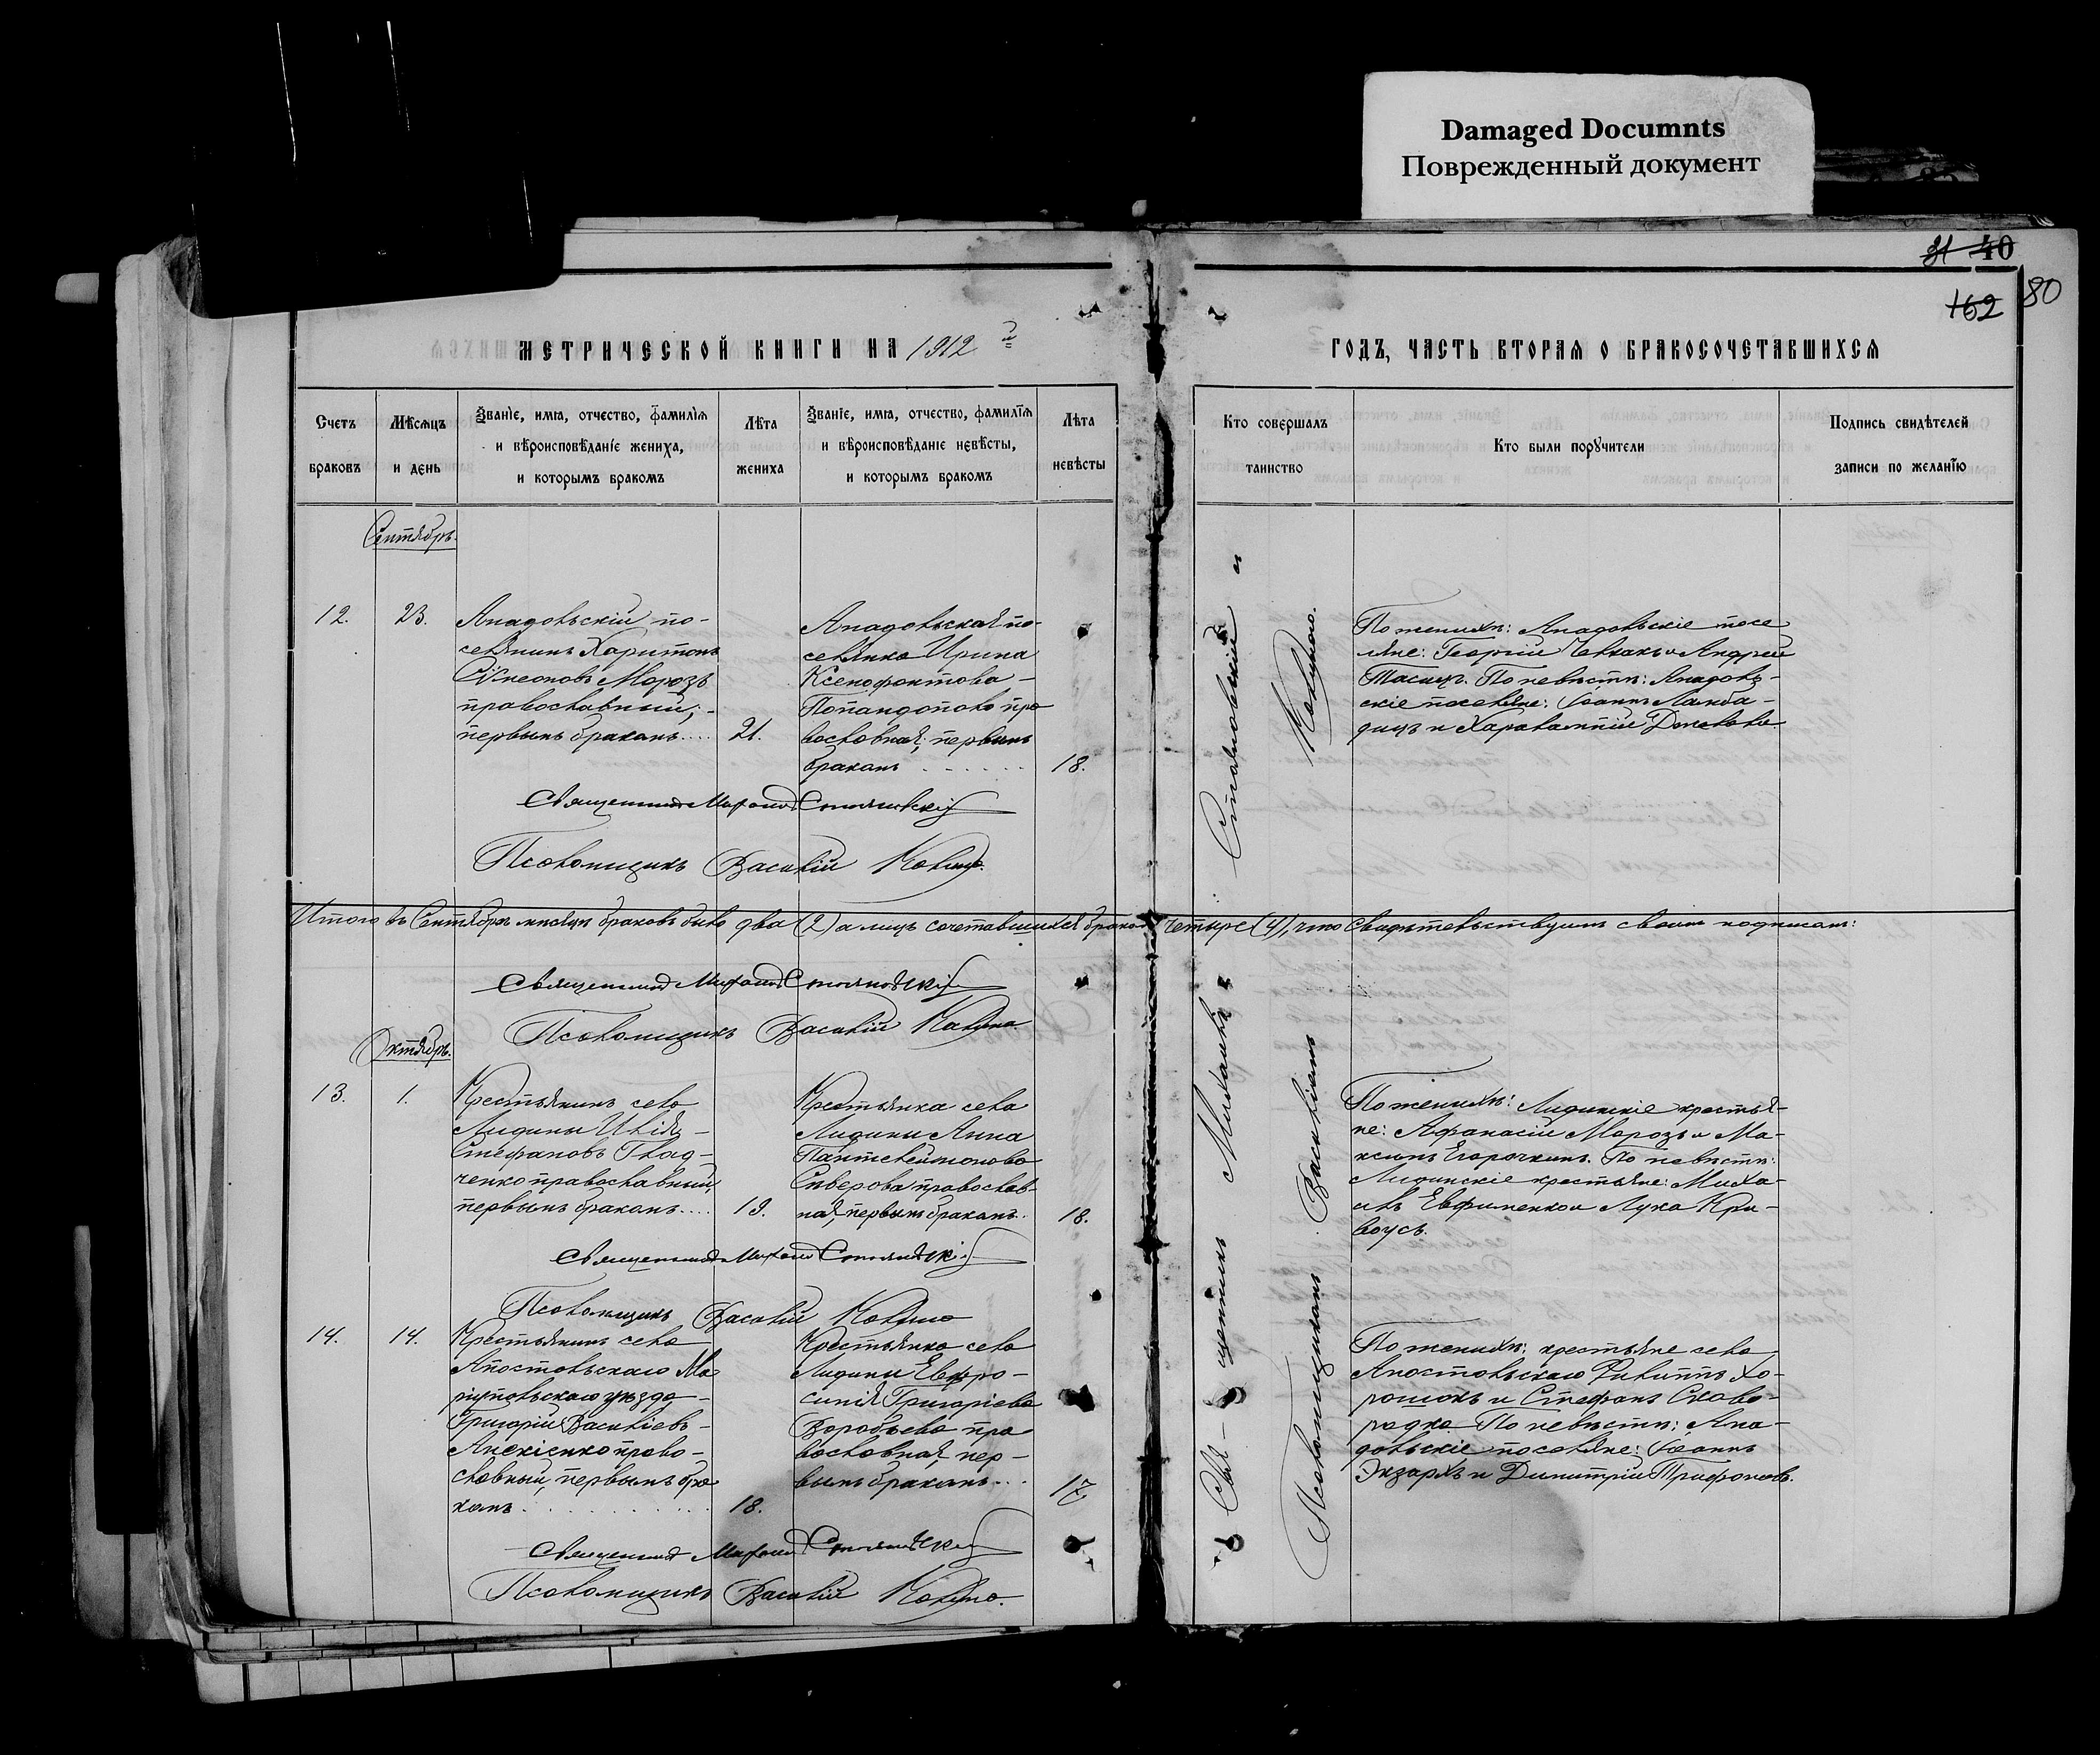 Damaged Documnts
Поврежденный документ
31 40
162 80
МЕТРИЧЕСКОЙ КНИГИ НА 1912 й
ГОДЪ, ЧАСТЬ ВТОРАЯ О БРАКОСОЧЕТАВШИХСЯ
Счетъ
браковъ
Мѣсяцъ
и день
Званїе, имя, отчество, фамилїя
и вѣроисповѣданїе жениха,
и которымъ бракомъ
Лѣта
жениха
Званїе, имя, отчество, фамилїя
и вѣроисповѣданїе невѣсты,
и которымъ бракомъ
Лѣта
невѣсты
Кто совершалъ
таинство
Кто были поручители
Подпись свидѣтелей
записи по желанїю
Сентябрь.
12.
23.
Анадольскій по-
селянинъ Харитонъ
Сѵмеоновъ Морозъ
православный;
первымъ бракомъ....
21.
Анадольская по-
селянка Ирина
Ксенофонтова
Попандополо пра
вославная; первымъ
бракомъ
18.
По женихѣ: Анадольскіе посе
ляне: Георгій и Андрей
Тасицъ. По невѣстѣ: Анадоль-
скіе поселяне: Іоаннъ Ламба-
дицъ и Харалампій
Священникъ Михаилъ Стояновскій
Псаломщикъ Василій
Итого въ Сентябрѣ мѣсяцѣ браковъ было два (2) а лицъ сочетавшихся бракомъ четыре (4), что свидѣтельствуемъ своимъ подписомъ:
Священникъ Михаилъ Стояновскій
Псаломщикъ Василій
Октябрь.
13.
1.
Крестьянинъ села
Лидины Илія
Стефановъ Глад-
ченко православный,
первымъ бракомъ....
19.
Крестьянка села
Лидины Анна
Пантелеймонова
Сиверова православ-
ная, первымъ бракомъ..
18.
По женихѣ: Лидинскіе крестья-
не: Афанасій Морозъ и Ма-
ксимъ Егорочкинъ. По невѣстѣ:
Лидинскіе крестьяне: Миха-
илъ Евфименко и Лука Кри-
воусъ.
Священникъ Михаилъ Стояновскій
Псаломщикъ Василій
14.
14.
Крестьянинъ села
Апостольскаго Ма
ріупольскаго уѣзда
Григорій Васильевъ
Алексіенко право-
славный, первымъ бра
комъ
18.
Крестьянка села
Лидины Евфро-
синія Григоріева
Воробьева пра
вославная, пер-
вымъ бракомъ...
17
По женихѣ: крестьяне села
Апостольскаго Филиппъ Хо-
рошокъ и Стефанъ Сково-
родка. По невѣстѣ: Ана-
дольскіе поселяне: Іоаннъ
Экзархъ и Димитрій Трифоновъ.
Священникъ Михаилъ Стояновскій
Псаломщикъ Василій
Священникъ Михаилъ Стояновскій съ
Псаломщикомъ Василіемъ